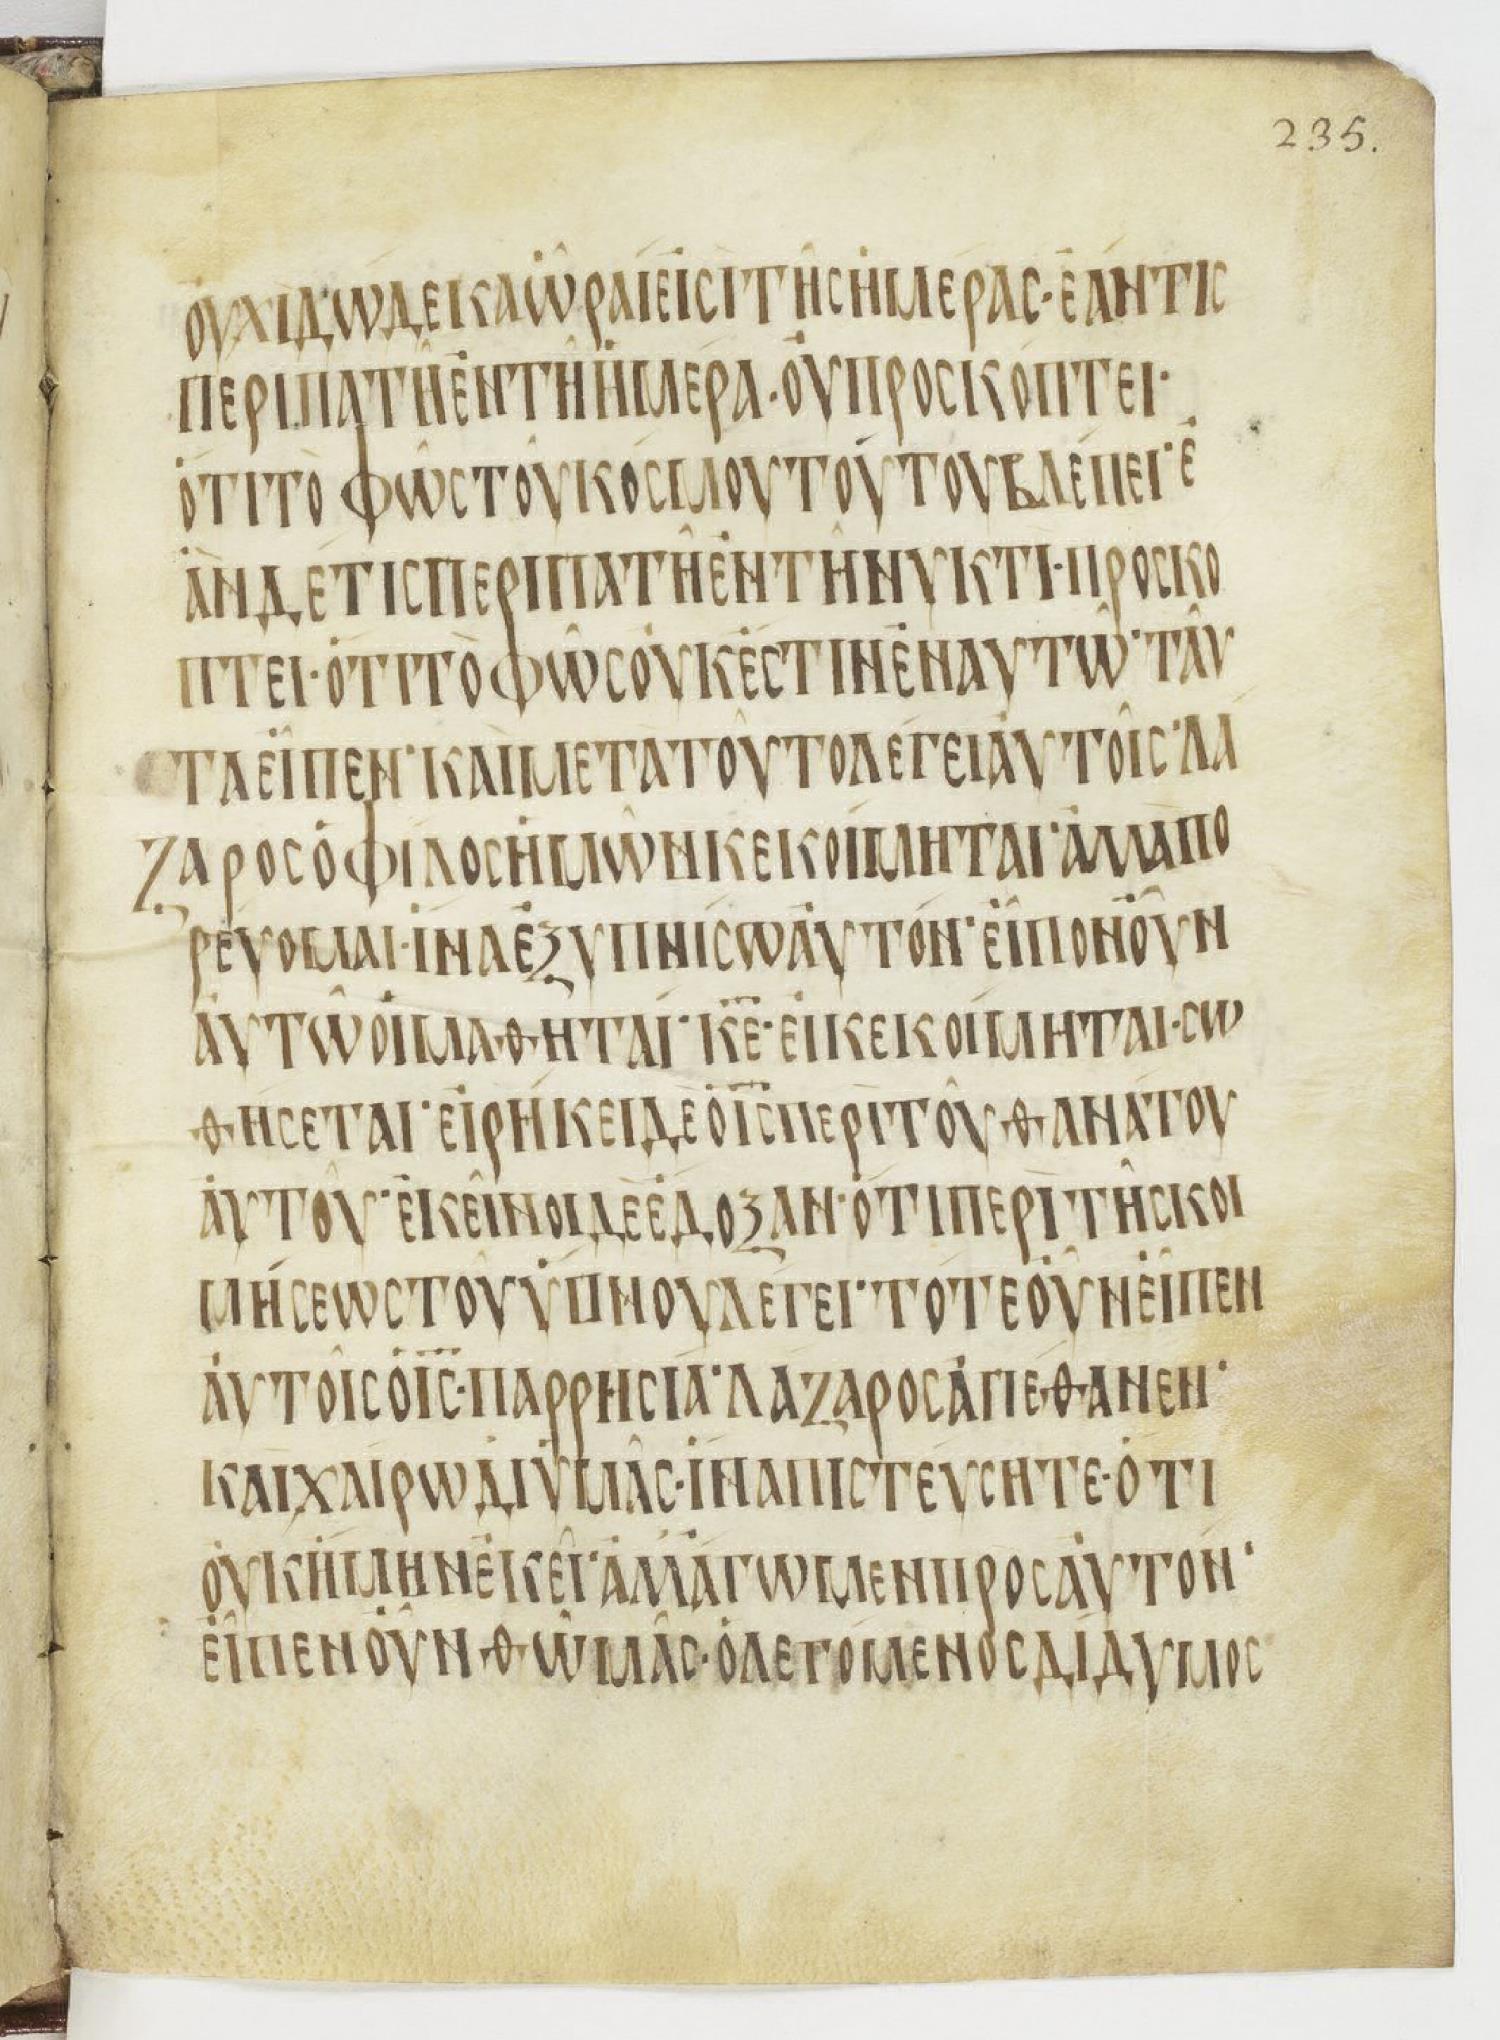 235.
ΟΥΧΙΔΩΔΕΚΑΩΡΑΙΕΙΣΙΤΗΣΗΜΕΡΑΣ·ΕΑΝΤΙΣ
ΠΕΡΙΠΑΤΗΕΝΤΗΗΜΕΡΑ·ΟΥΠΡΟΣΚΟΠΤΕΙ·
ΟΤΙΤΟΦΩΣΤΟΥΚΟΣΜΟΥΤΟΥΤΟΥΒΛΕΠΕΙ·Ε
ΑΝΔΕΤΙΣΠΕΡΙΠΑΤΗΕΝΤΗΝΥΚΤΙ·ΠΡΟΣΚΟ
ΠΤΕΙ·ΟΤΙΤΟΦΩΣΟΥΚΕΣΤΙΝΕΝΑΥΤΩ·ΤΑΥ
ΤΑΕΙΠΕΝ·ΚΑΙΜΕΤΑΤΟΥΤΟΛΕΓΕΙΑΥΤΟΙΣ·ΛΑ
ΖΑΡΟΣΟΦΙΛΟΣΗΜΩΝΚΕΚΟΙΜΗΤΑΙ·ΑΛΛΑΠΟ
ΡΕΥΟΜΑΙ·ΙΝΑΕΞΥΠΝΙΣΩΑΥΤΟΝ·ΕΙΠΟΝΟΥΝ
ΑΥΤΩΟΙΜΑΘΗΤΑΙ·Κ̅Ε̅·ΕΙΚΕΚΟΙΜΗΤΑΙ·ΣΩ
ΘΗΣΕΤΑΙ·ΕΙΡΗΚΕΙΔΕΟΙ̅Σ̅ΠΕΡΙΤΟΥΘΑΝΑΤΟΥ
ΑΥΤΟΥ·ΕΚΕΙΝΟΙΔΕΕΔΟΞΑΝ·ΟΤΙΠΕΡΙΤΗΣΚΟΙ
ΜΗΣΕΩΣΤΟΥΥΠΝΟΥΛΕΓΕΙ·ΤΟΤΕΟΥΝΕΙΠΕΝ
ΑΥΤΟΙΣΟΙ̅Σ̅·ΠΑΡΡΗΣΙΑ·ΛΑΖΑΡΟΣΑΠΕΘΑΝΕΝ·
ΚΑΙΧΑΙΡΩΔΙΥΜΑΣ·ΙΝΑΠΙΣΤΕΥΣΗΤΕ·ΟΤΙ
ΟΥΚΗΜΗΝΕΚΕΙ·ΑΛΛΑΓΩΜΕΝΠΡΟΣΑΥΤΟΝ·
ΕΙΠΕΝΟΥΝΘΩΜΑΣ·ΟΛΕΓΟΜΕΝΟΣΔΙΔΥΜΟΣ